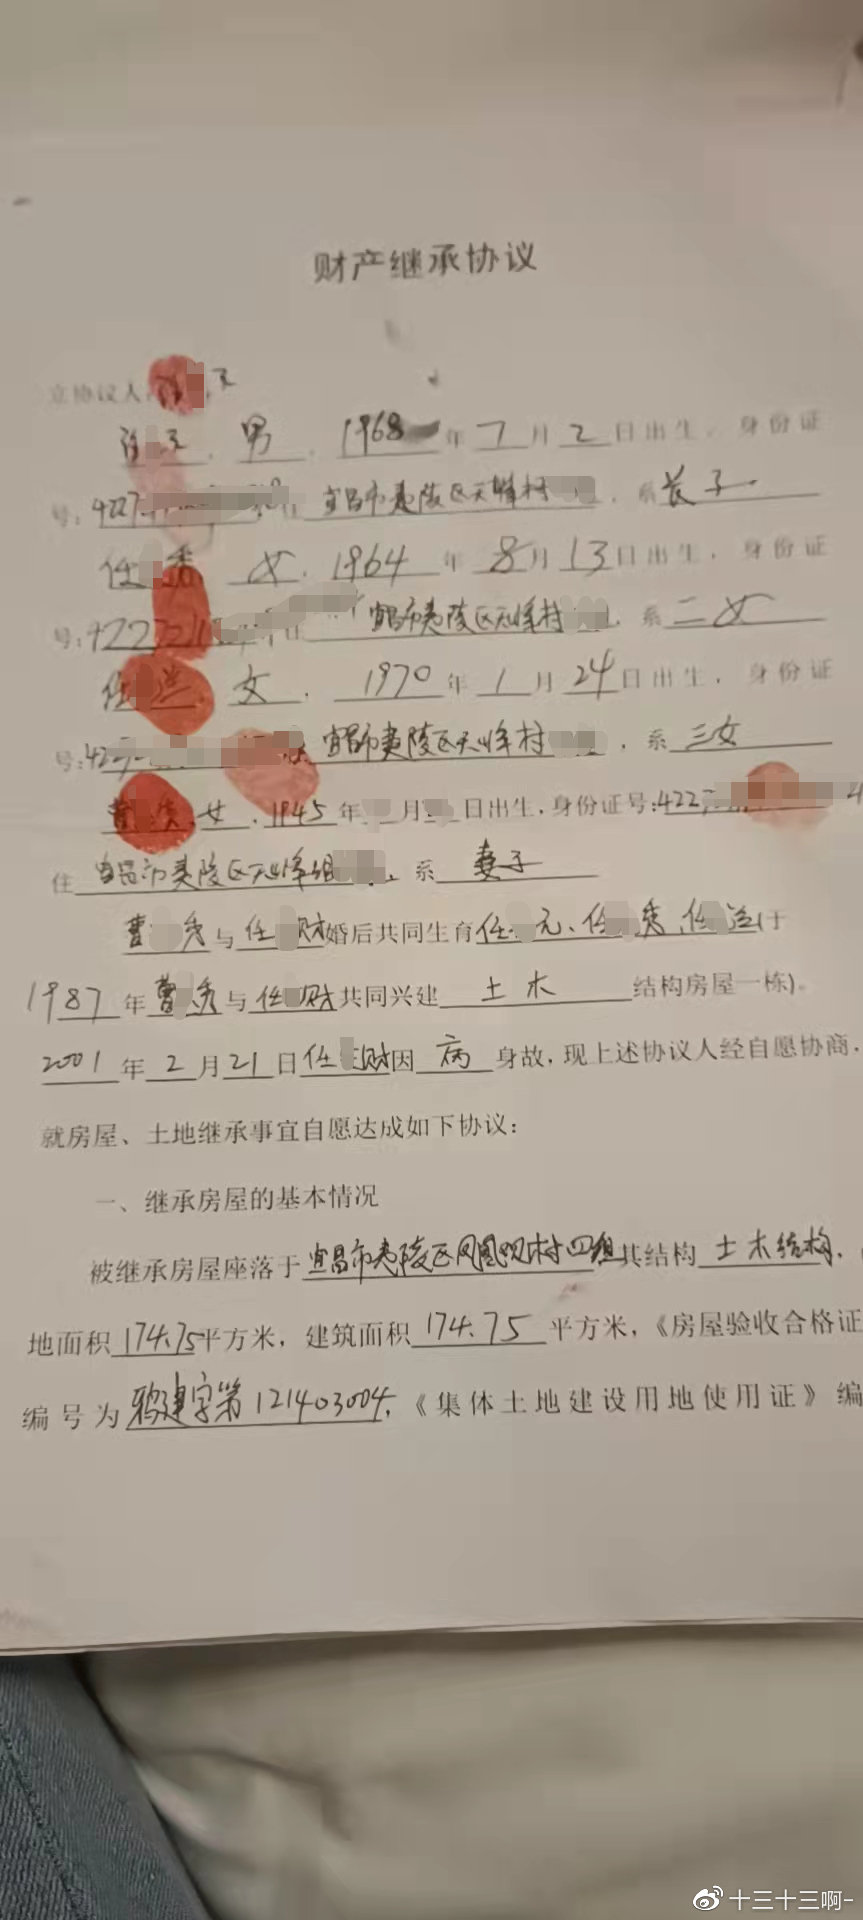 财产继承协议
立协议人
男 1968 年 7 月 2 日出生，身份证
号：4227 宜昌市夷陵区天峰村 ，系 长子
任 秀 女 1964 年 8 月 13 日出生，身份证
号：422721 宜昌市夷陵区天峰村 ，系 二女
任 女 1970 年 1 月 24 日出生，身份证
号：42 宜昌市夷陵区天峰村 ，系 三女
女 1945 年 月 日出生，身份证号：422
住 宜昌市夷陵区天峰组 系 妻子
曹 秀 与 任 财 婚后共同生育 任 元、任 秀、任 （于
1987 年 曹 秀 与 任 财 共同兴建 土木 结构房屋一栋）。
2001 年 2 月 21 日 任 财 因 病 身故，现上述协议人经自愿协商，
就房屋、土地继承事宜自愿达成如下协议：
一、继承房屋的基本情况
被继承房屋座落于 宜昌市夷陵区凤凰观村四组 其结构 土木结构，
地面积 174.75 平方米，建筑面积 174.75 平方米，《房屋验收合格证
编号为 鸦建字第121403004，《集体土地建设用地使用证》编
十三十三啊-